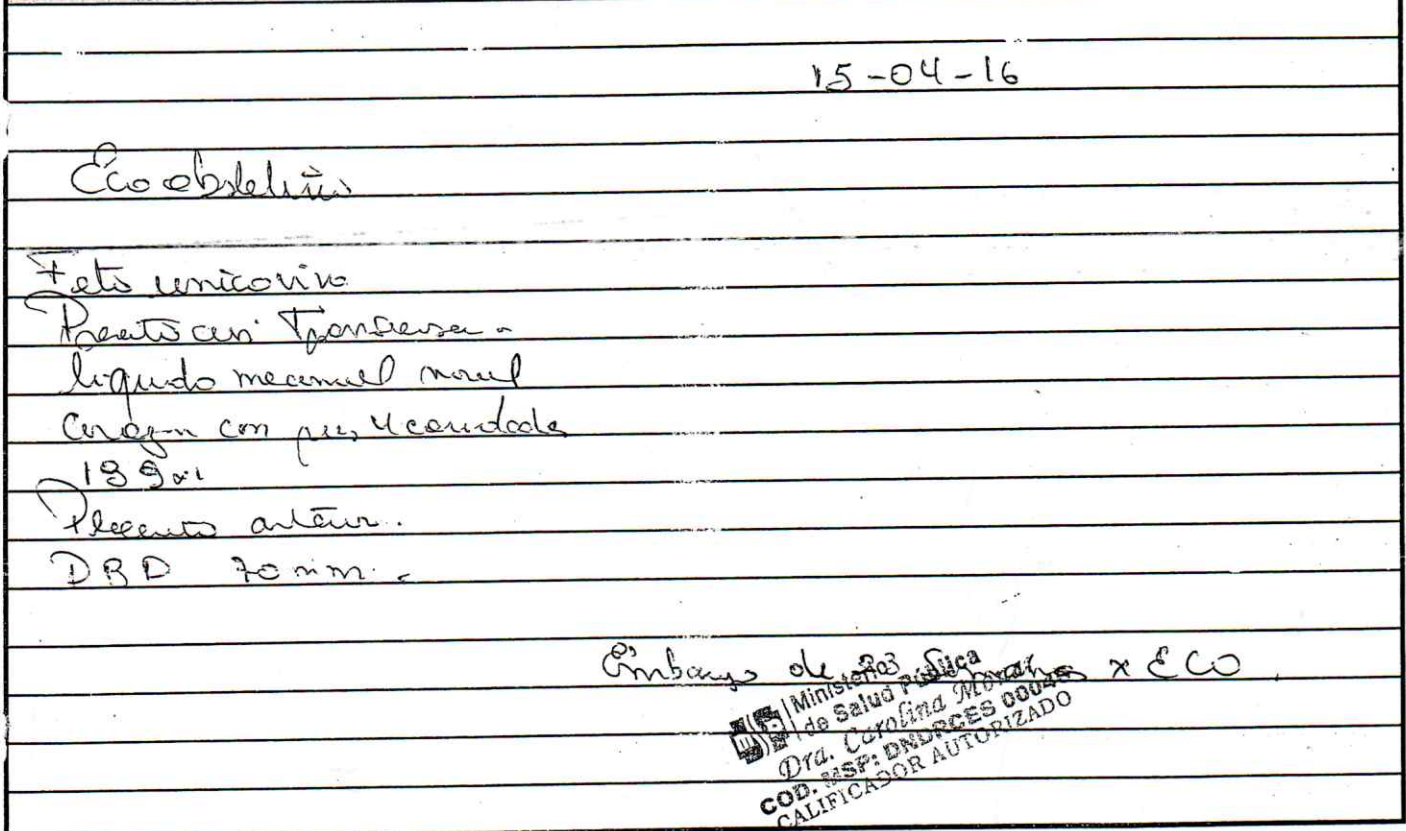 15-04-16
Eco obstetrico
Feto unico vivo
Presentacion Transversa.
liquido normal
Corazon con
Placenta anterior.
DBP 70 mm.
Embarazo de Semanas x ECO.
Ministerio
de Salud Pública
Dra. Carolina Moran
COD. MSP: DNDRCES 00045
CALIFICADOR AUTORIZADO